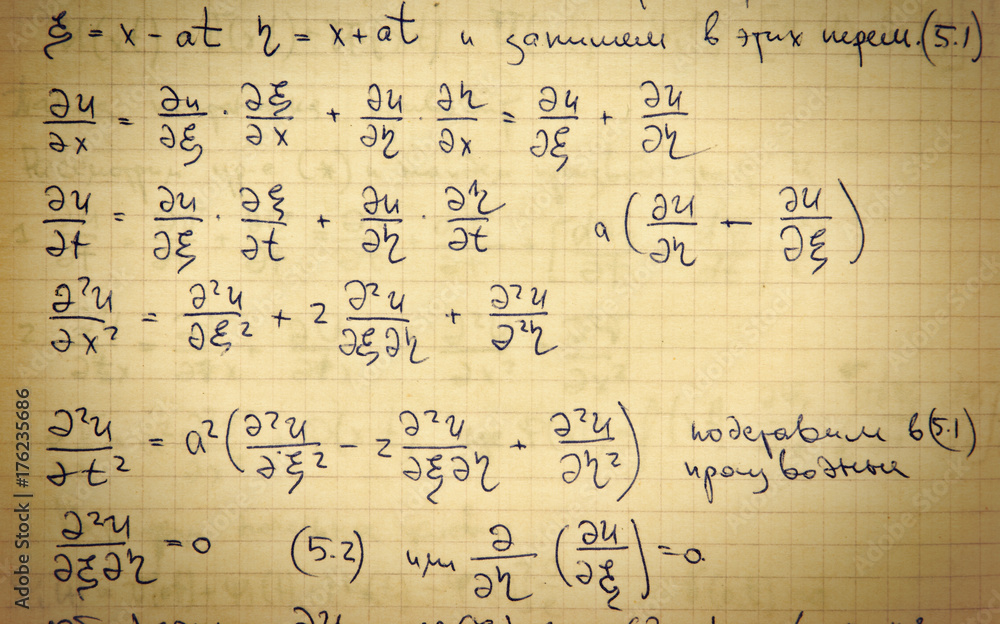 ξ = x - at η = x + at и запишем в этих перем. (5.1)
∂u/∂x = ∂u/∂ξ · ∂ξ/∂x + ∂u/∂η · ∂η/∂x = ∂u/∂ξ + ∂u/∂η
∂u/∂t = ∂u/∂ξ · ∂ξ/∂t + ∂u/∂η · ∂η/∂t a(∂u/∂η - ∂u/∂ξ)
∂²u/∂x² = ∂²u/∂ξ² + 2 ∂²u/∂ξ∂η + ∂²u/∂²η
∂²u/∂t² = a²(∂²u/∂ξ² - 2 ∂²u/∂ξ∂η + ∂²u/∂η²) подставим в (5.1)
производные
∂²u/∂ξ∂η = 0 (5.2) или ∂/∂η (∂u/∂ξ) = 0.
Adobe Stock | #176235686